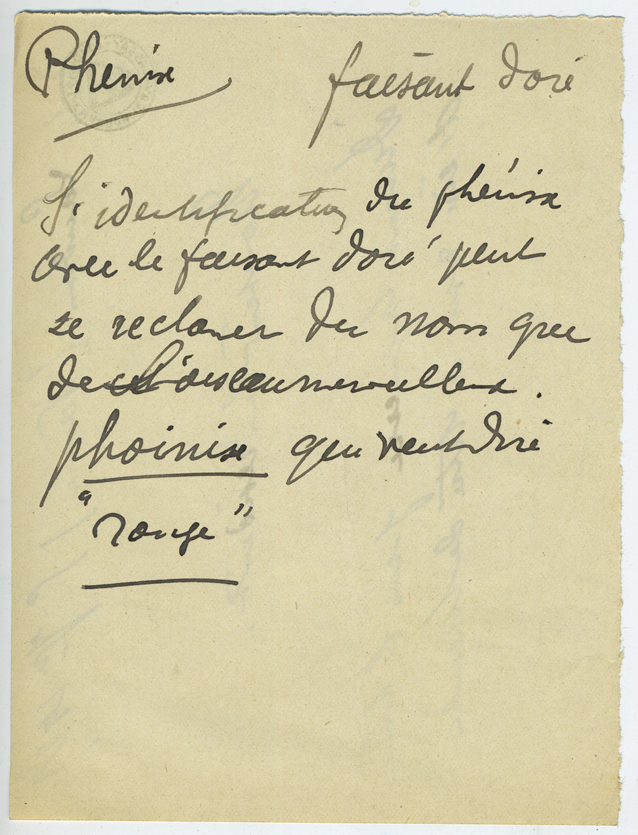 Phénix faisant doré
L'identification du phénix
avec le faisant doré peut
se reclamer du nom grec
de l'oiseau merveilleux.
phoinix qui veut dire
"rouge"